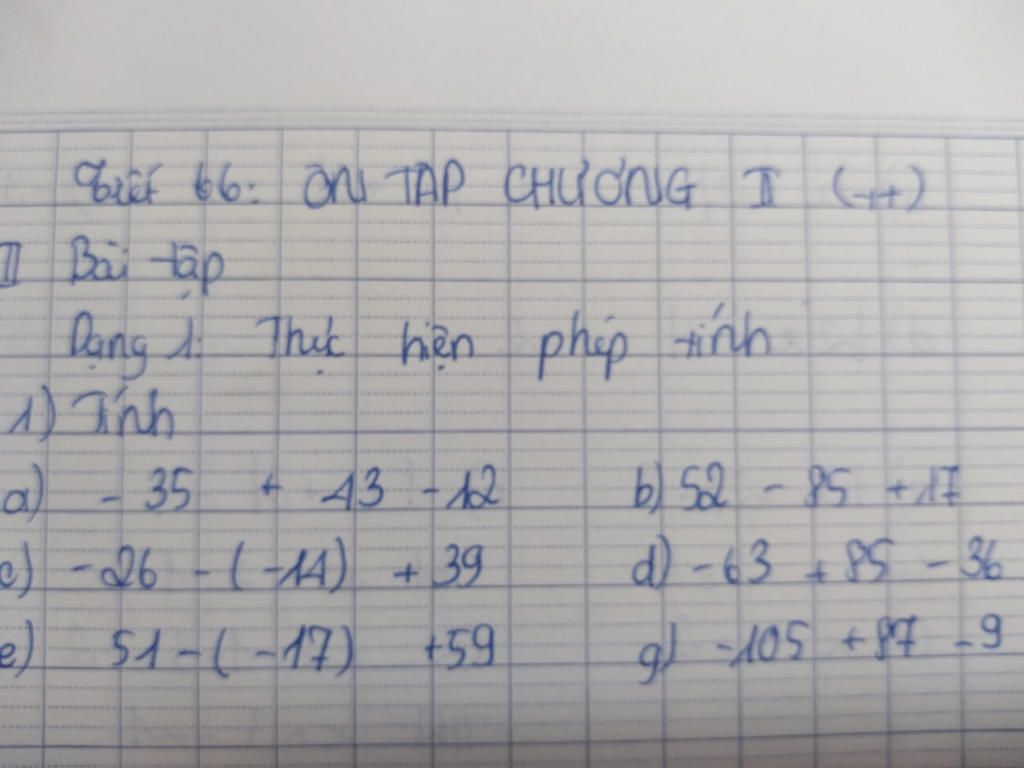 Tiết 66: ÔN TẬP CHƯƠNG II (tt)
II Bài tập
Dạng 1: Thực hiện phép tính
1) Tính
a) - 35 + 13 - 12 b) 52 - 85 + 17
c) - 26 - ( -14) + 39 d) - 63 + 85 - 36
e) 51 - ( -17) +59 g) -105 + 87 - 9